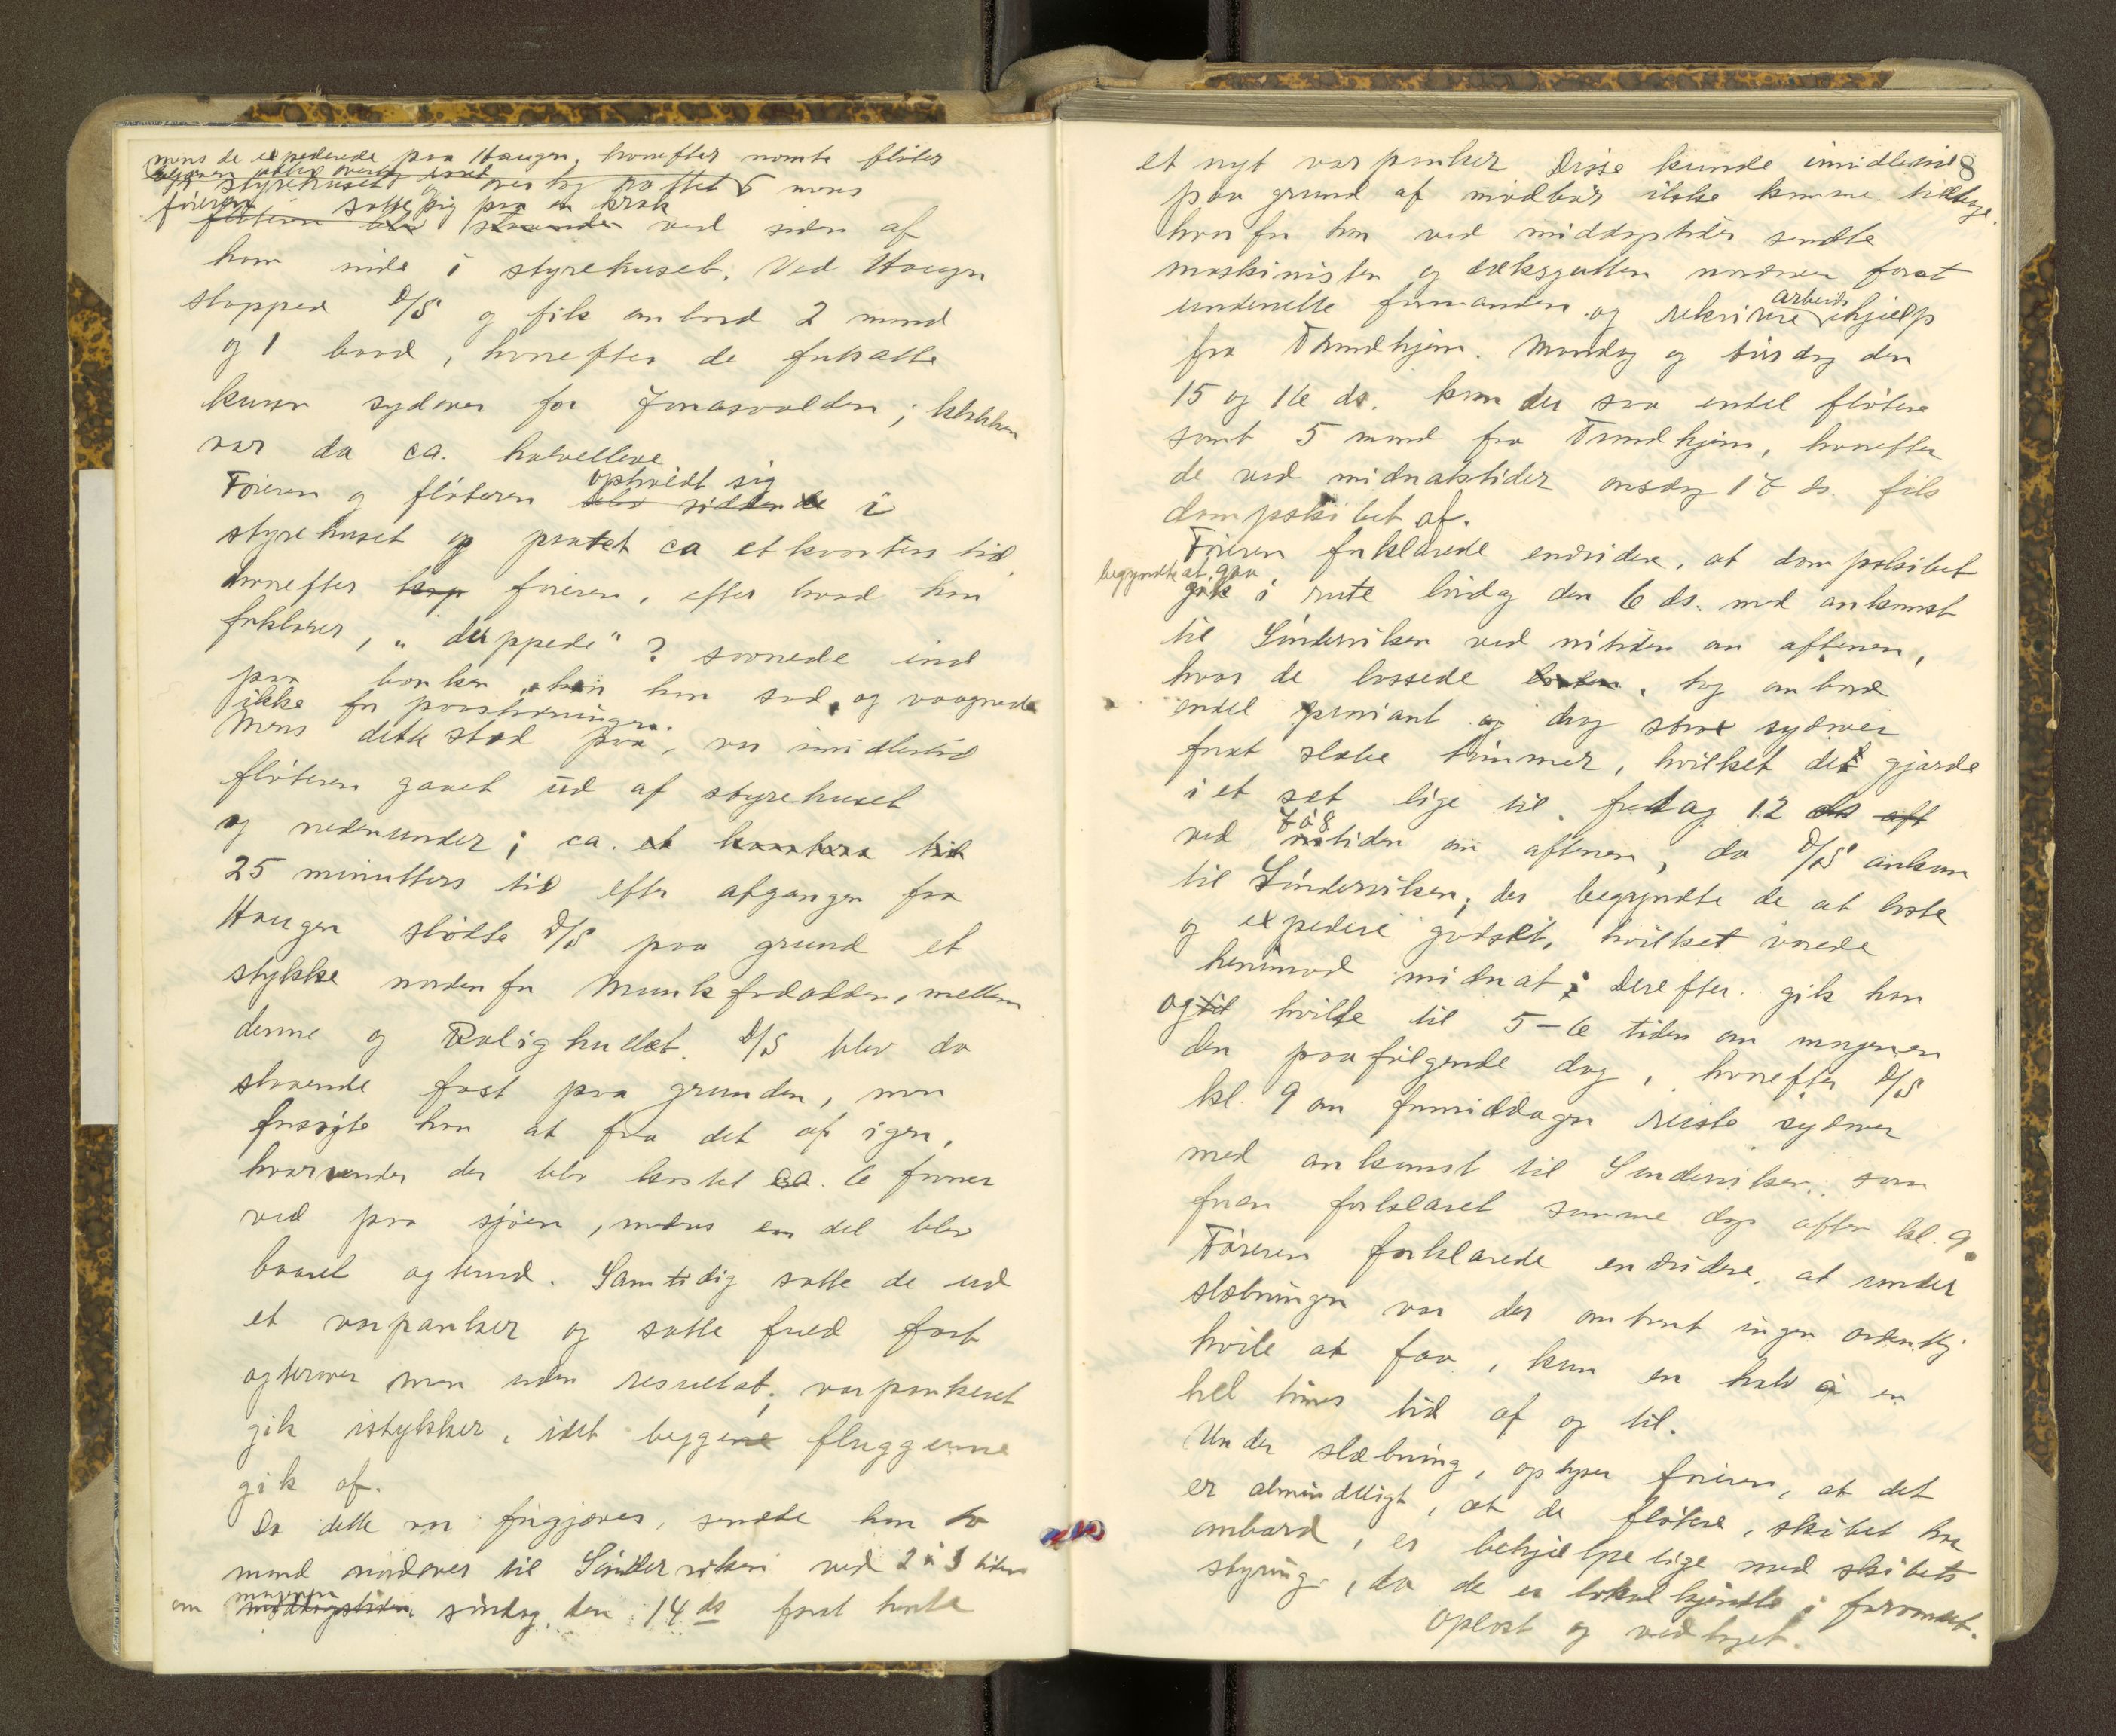 mens de expederede paa Haugen, hvorefter nævnte fløter
styrehuset og overtog rattet mens
føreren satte sig paa en krak
ved siden af
ham inde i styrehuset. Ved Haugen
stopped D/S og fik ombord 2 mand
og 1 baad, hvorefter de fortsatte
kursen sydover for Jonasvolden; klokken
var da ca. halvelleve
Føreren og fløteren opholdt sig i
styrehuset og pratet ca et kvarters tid,
hvorefter føreren, efter hvad han
forklarer, "duppede"? sovnede ind
paa bænken, hvor han sad, og vaagnede
ikke før paastødningen.
Mens dette stod paa, var imidlertid
fløteren gaaet ud af styrehuset
og nedenunder; ca.
25 minutters tid efter afgangen fra
Haugen stødte D/S paa grund et
stykke nordenfor Munkfododden, mellem
denne og Rolighullet. D/S blev da
staaende fast paa grunden, men
forsøgte han at faa det af igen,
hvorunder der blev kastet ca. 6 favner
ved paa sjøen, medens en del blev
baaret agterud. Samtidig satte de ud
et varpanker og satte fuld fart
agterover men uden resultat; varpankeret
gik istykker, idet begge fluggerne
gik af.
Da dette var forgjæves, sendte han to
mand nordover til Søndervik ved 2 à 3 tiden
om morgenen søndag den 14 ds forat hente
et nyt varpanker Disse kunde imidlertid 8
paa grund af modbør ikke komme tilbage.
hvorfor han ved middagstider sendte
maskinisten og dæksgutten nordover forat
underrette formanden og rekvirere arbeidshjælp
fra Trondhjem. Mandag og tirsdag den
15 og 16 ds. kom der saa endel fløtere
samt 5 mand fra Trondhjem, hvorefter
de ved midnatstider onsdag 17 ds. fik
dampskibet af.
Føreren forklarede endvidere, at dampskibet
begyndte at gaa
i rute lørdag den 6 ds. med ankomst
til Sønderviken ved nitiden om aftenen,
hvor de lossede, tog ombord
endel proviant og drog sydover
forat slæbe tømmer, hvilket de gjorde
i et sæt lige til fredag 12
ved 7 à 8 tiden om aftenen, da D/S ankom
til Sønderviken; der begyndte de at losse
og expedere godset, hvilket varede
henimod midnat; Derefter gik han
og hvilte til 5-6 tiden om morgenen
den paafølgende dag, hvorefter D/S
kl. 9 om formiddagen reiste sydover
med ankomst til Sønderviken, som
foran forklaret samme dags aften kl. 9.
Føreren forklarede endvidere, at under
slæbningen var der omtrent ingen ordentlig
hvile at faa, kun en halv à en
hel times tid af og til.
Under slæbning, oplyser føreren, at det
er almindeligt, at de fløtere, skibet har
ombord, er behjælpelige med skibets
styring, da de er lokalkjendte i farvandet.
Oplæst og vedtaget.